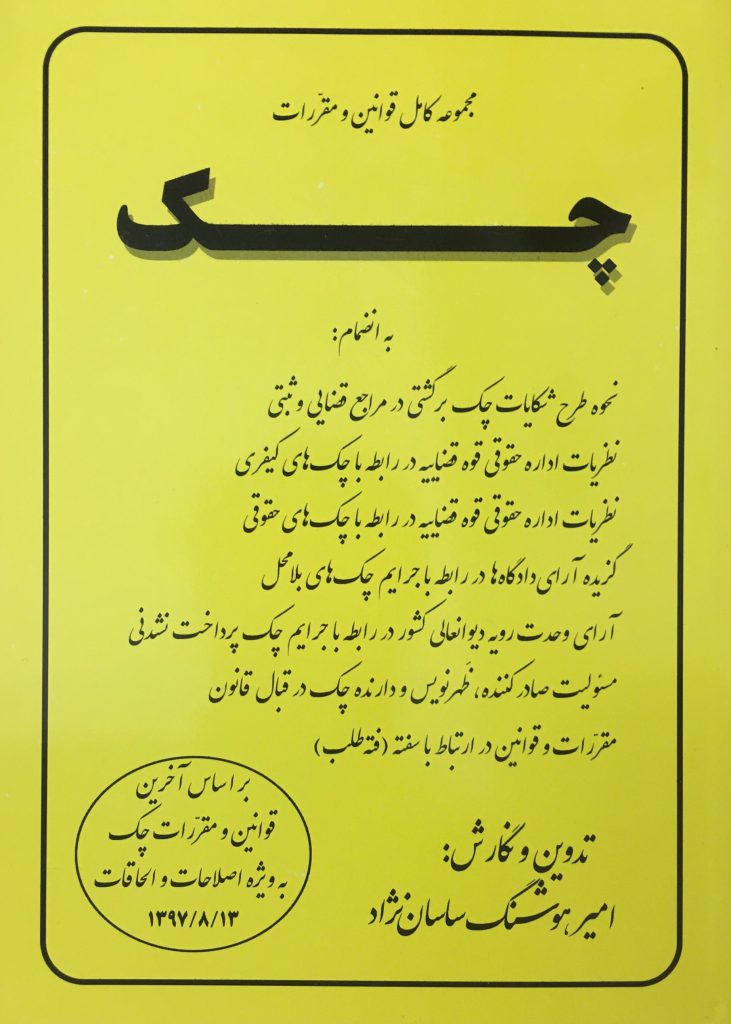 مجموعه کامل قوانین و مقرّرات
چک
به انضمام:
نحوه طرح شکایات چک برگشتی در مراجع قضایی و ثبتی
نظریات اداره حقوقی قوه قضاییه در رابطه با چک‌های کیفری
نظریات اداره حقوقی قوه قضاییه در رابطه با چک‌های حقوقی
گزیده آرای دادگاه‌ها در رابطه با جرایم چک‌های بلامحل
آرای وحدت رویه دیوانعالی کشور در رابطه با جرایم چک پرداخت نشدنی
مسئولیت صادر کننده، ظَهرنویس و دارنده چک در قبال قانون
مقرّرات و قوانین در ارتباط با سفته (فته طلب)
تدوین و نگارش:
امیر هوشنگ ساسان‌نژاد
بر اساس آخرین
قوانین و مقرّرات چک
به ویژه اصلاحات و الحاقات
۱۳۹۷/۸/۱۳